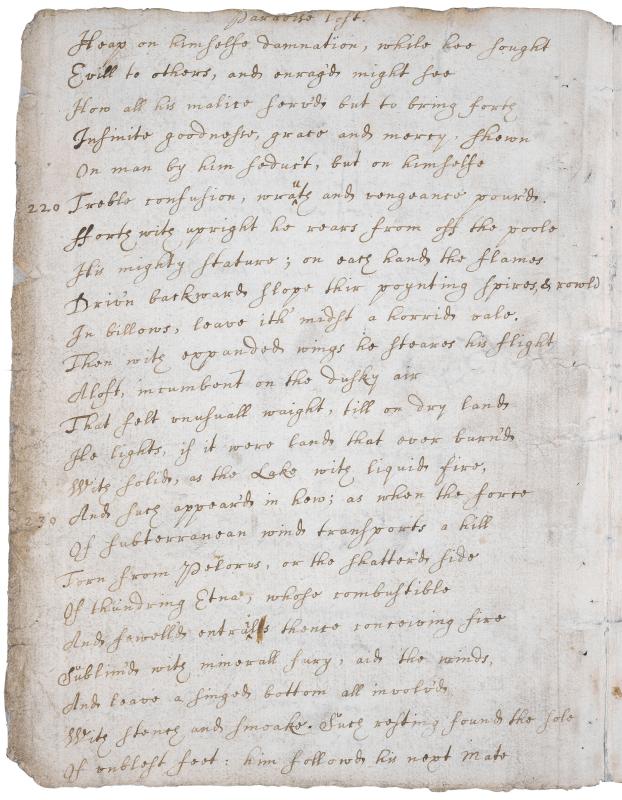 Paradise lost.
Heap on himselfe damnation, while hee sought
Evill to others, and enrag'd might see
How all his malice serv'd but to bring forth
Infinite goodnesse, grace and mercy shewn
On man by him seduc't, but on himselfe
220 Treble confusion, wrauth and vengeance pour'd.
fforthwith upright he rears from off the poole
His mighty stature; on each hand the flames
Driv'n backward slope thir poynting spires, & rowld
In billows, leave ith' midst a horrid vale.
Then with expanded wings he steares his flight
Aloft, incumbent on the dusky air
That felt unusuall waight, till on dry land
He lights, if it were land that ever burn'd
With solid, as the Lake with liquid fire,
230 And such appear'd in hew; as when the force
Of subterranean wind transports a hill
Torn from Pelorus, or the shatter'd side
Of thundring Etna, whose combustible
And fewell'd entralls thence conceiving fire
Sublim'd with minerall fury, aid the winds,
And leave a singed bottom all involv'd
With stench and smoake. Such resting found the sole
Of unblest feet: him follow'd his next Mate